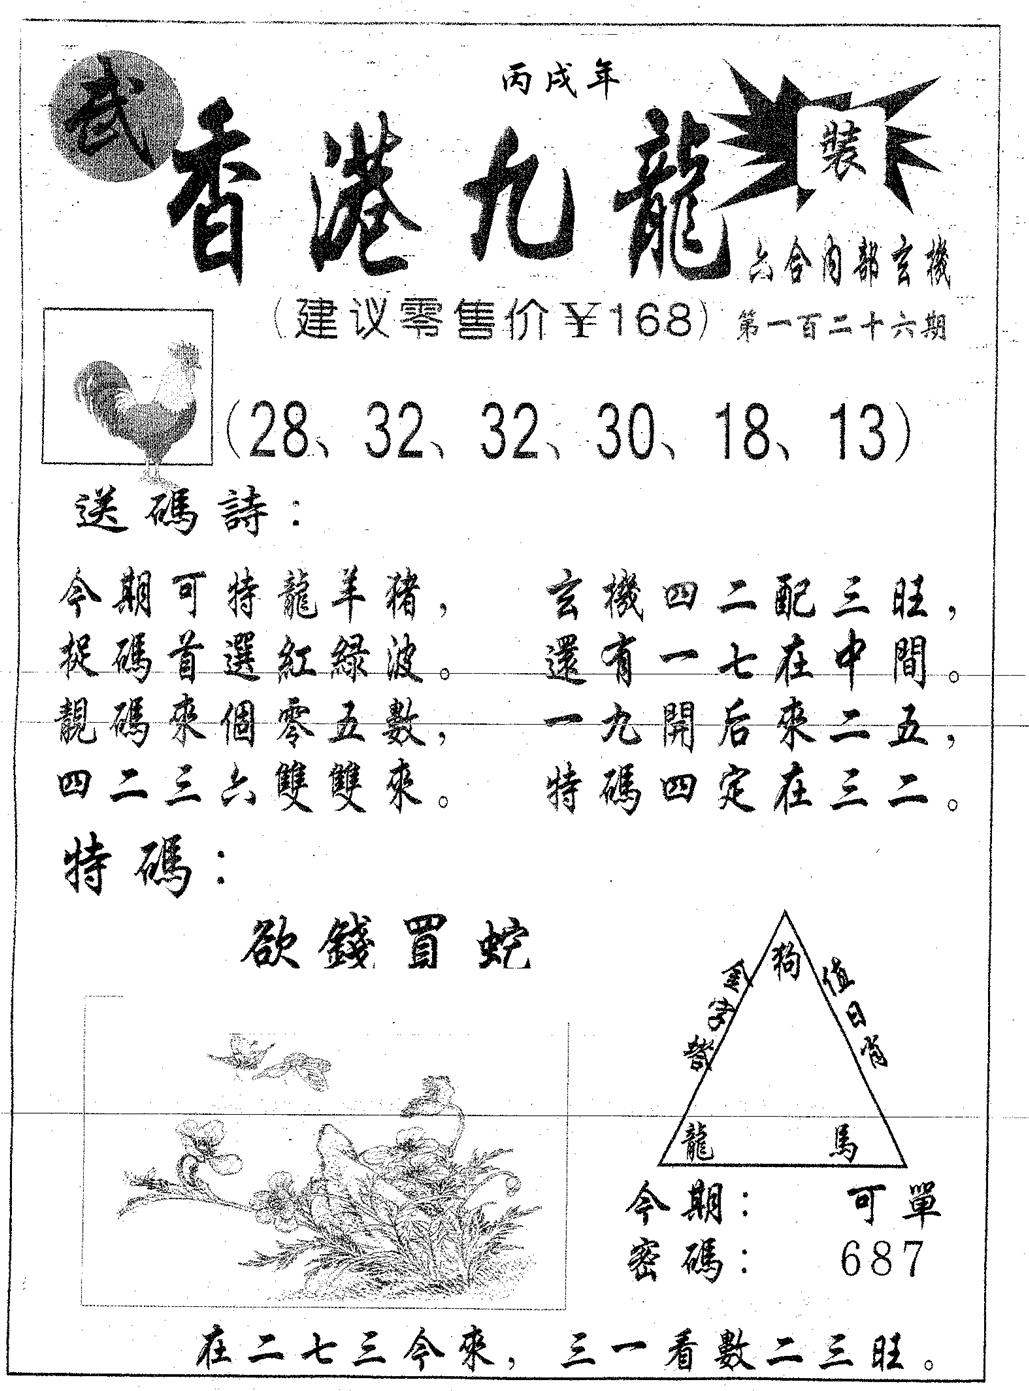 丙戌年
武
香港九龍
裝
六合內部玄機
(建议零售价¥168)
第一百二十六期
(28、32、32、30、18、13)
送碼詩：
今期可特龍羊猪， 玄機四二配三旺，
捉碼首選紅綠波。 還有一七在中間。
靚碼來個零五數， 一九開后來二五，
四二三六雙雙來。 特碼四定在三二。
特碼：
欲錢買蛇
狗
金字塔
值日肖
龍 馬
今期： 可單
密碼： 687
在二七三今來，三一看數二三旺。